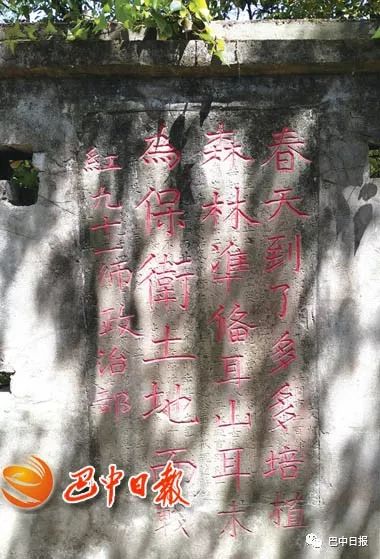 春天到了多多培植
森林準俻耳山耳木
為保衛土地而戰
紅九十一师政治部
巴中日报
巴中日报